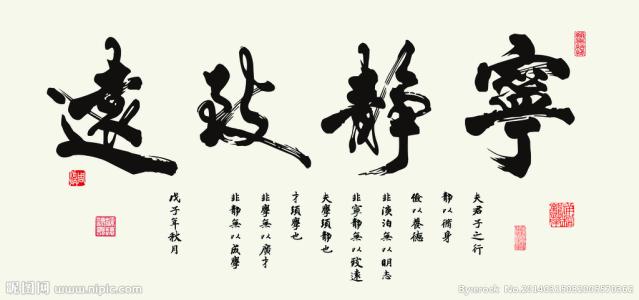 寧靜致遠
夫君子之行
靜以脩身
儉以養德
非淡泊無以明志
非寧靜無以致遠
夫學須靜也
才須學也
非學無以廣才
非靜無以成學
戊子年秋月
昵图网 www.nipic.com
Byerock No.20140315082005570362